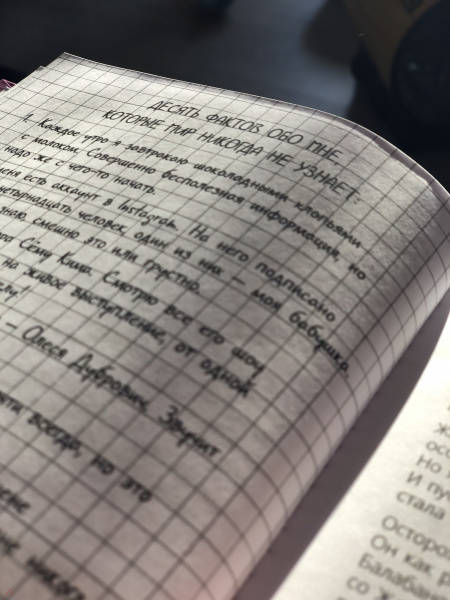 ДЕСЯТЬ ФАКТОВ ОБО МНЕ,
КОТОРЫЕ МИР НИКОГДА НЕ УЗНАЕТ:
1. Каждое утро я завтракаю шоколадными хлопьями
с молоком. Совершенно бесполезная информация, но
надо же с чего-то начать.
меня есть аккаунт в Instagram. На него подписано
четырнадцать человек, один из них — моя бабушка.
знаю, смешно это или грустно.
Сёму Кима. Смотрю все его шоу
на живое выступление, от одной
— Олеся Дубрович. Звучит
всегда, но это
Но
И
стала
Осторо
Он как р
Балабан
со